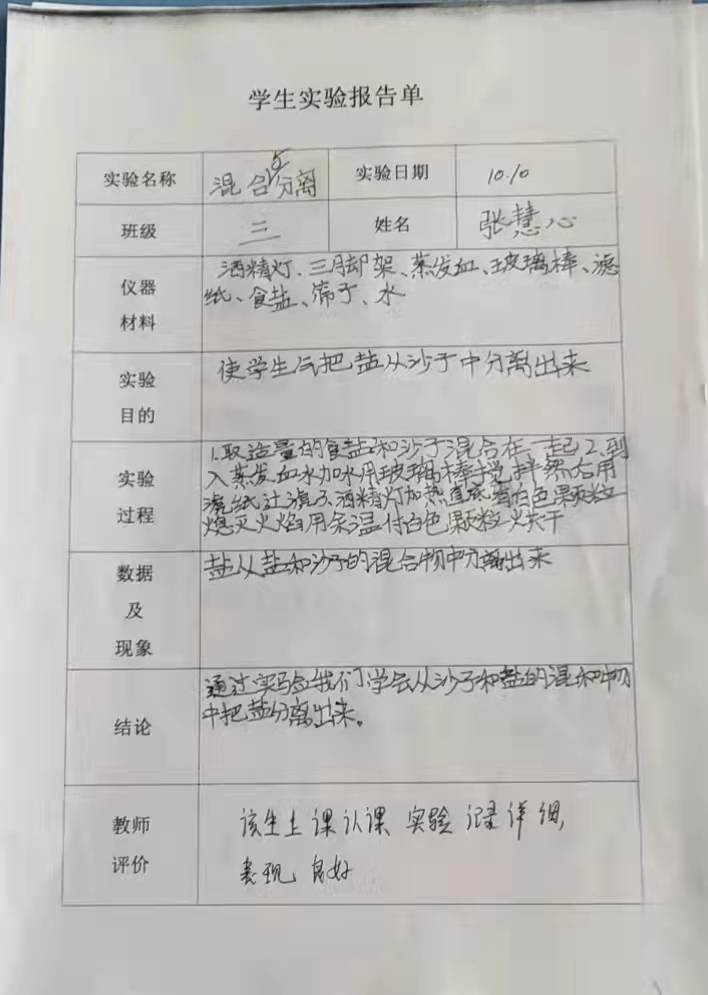 学生实验报告单
实验名称 混合与分离 实验日期 10.10
班级 三 姓名 张慧心
仪器
材料
酒精灯、三脚架、蒸发皿、玻璃棒、滤
纸、食盐、筛子、水
实验
目的
使学生会把盐从沙子中分离出来
实验
过程
1.取适量的食盐和沙子混合在一起2.到
入蒸发皿水加水用玻璃棒搅拌然右用
滤纸过滤3.酒精灯加热直底有白色颗粒
熄灭火焰用余温付白色颗粒火共干
数据
及
现象
盐从盐和沙子的混合物中分离出来
结论
通过实验我们学会从沙子和盐的混和物
中把盐分离出来。
教师
评价
该生上课认课 实验 记录详细,
表现 良好